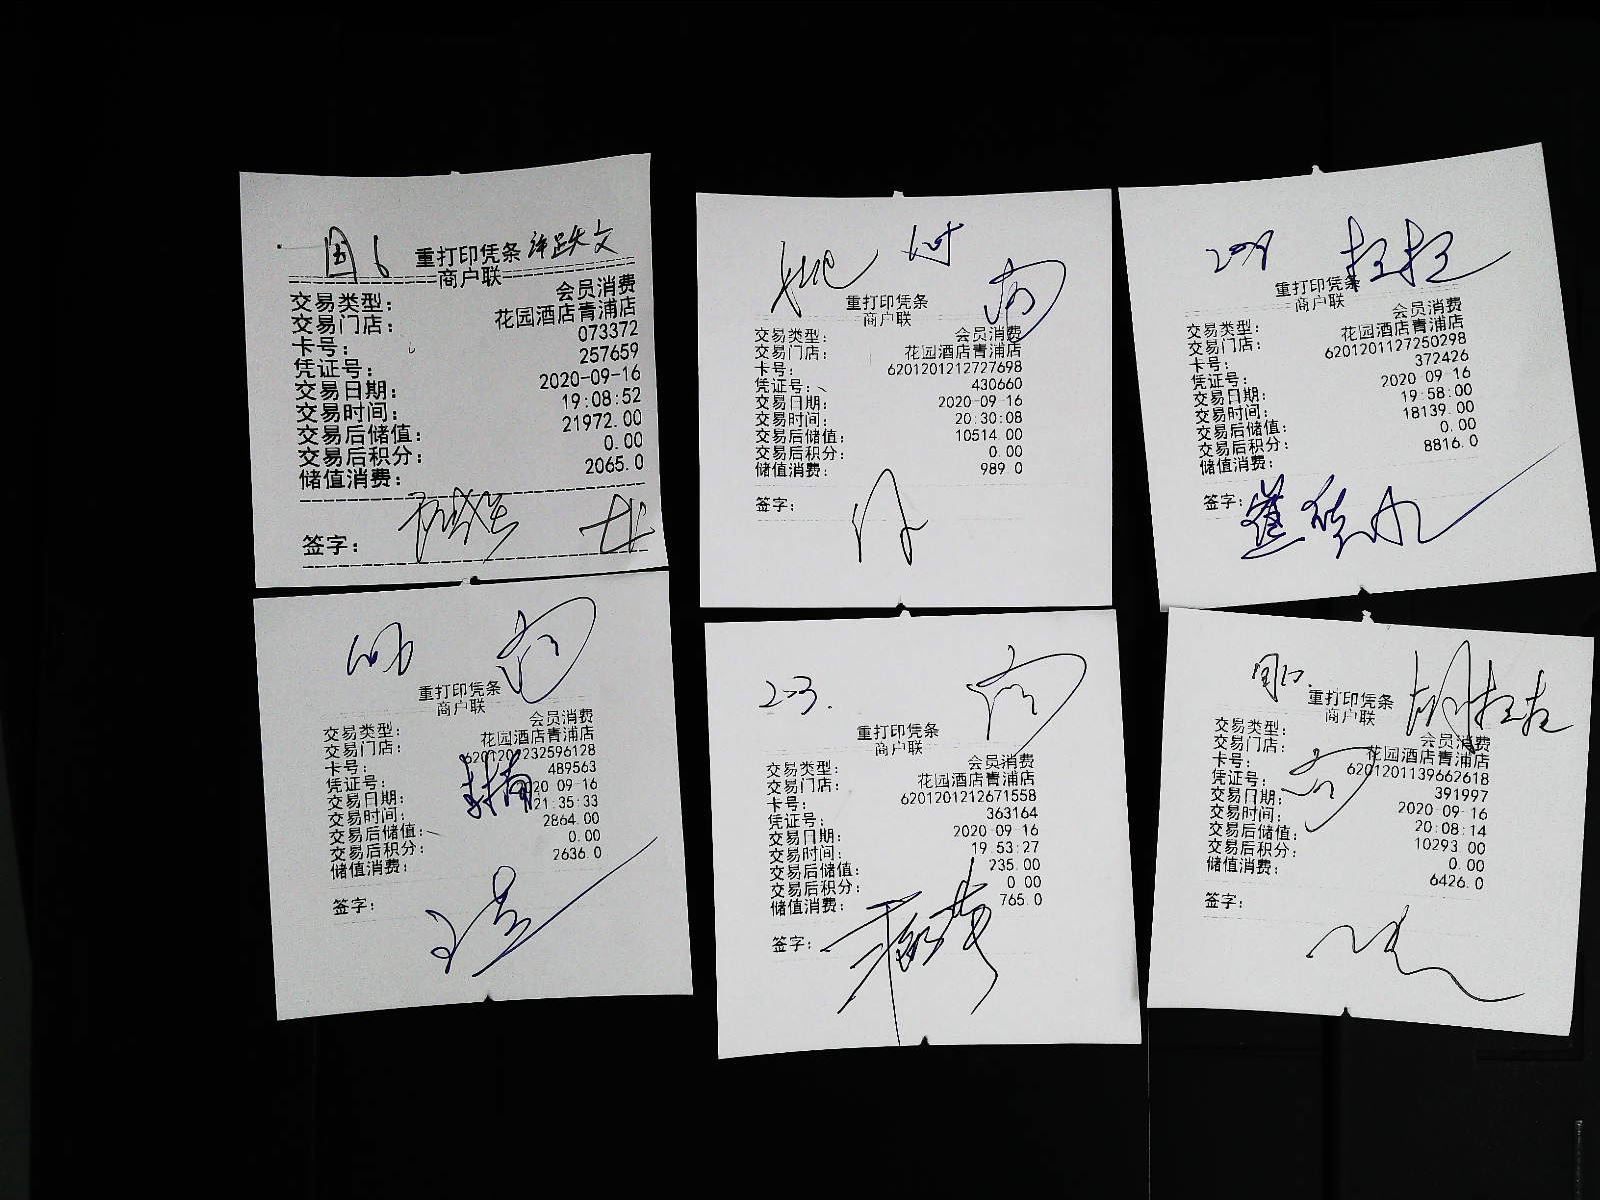 国 6
重打印凭条
商户联
交易类型: 会员消费
交易门店: 花园酒店青浦店
卡号: 073372
凭证号: 257659
交易日期: 2020-09-16
交易时间: 19:08:52
交易后储值: 21972.00
交易后积分: 0.00
储值消费: 2065.0
签字:
重打印凭条
商户联
交易类型: 会员消费
交易门店: 花园酒店青浦店
卡号: 6201201212727698
凭证号: 430660
交易日期: 2020-09-16
交易时间: 20:30:08
交易后储值: 10514 00
交易后积分: 0 00
储值消费: 989 0
签字:
重打印凭条
商户联
交易类型: 会员消费
交易门店: 花园酒店青浦店
卡号: 6201201127250298
凭证号: 372426
交易日期: 2020 09 16
交易时间: 19:58:00
交易后储值: 18139.00
交易后积分: 0.00
储值消费: 8816.0
签字:
重打印凭条
商户联
交易类型: 会员消费
交易门店: 花园酒店青浦店
卡号:
凭证号: 489563
交易日期: 20 09 16
交易时间: 21:35:33
交易后储值: 2864.00
交易后积分: 0.00
储值消费: 2636.0
签字:
2-3.
重打印凭条
商户联
交易类型: 会员消费
交易门店: 花园酒店青浦店
卡号: 6201201212671558
凭证号: 363164
交易日期: 2020 09 16
交易时间: 19 53:27
交易后储值: 235.00
交易后积分: 0 00
储值消费: 765.0
签字:
重打印凭条
商户联
交易类型: 会员消费
交易门店: 花园酒店青浦店
卡号: 6201201139662618
凭证号: 391997
交易日期: 2020 09 16
交易时间: 20:08:14
交易后储值: 10293 00
交易后积分: 0.00
储值消费: 6426.0
签字: